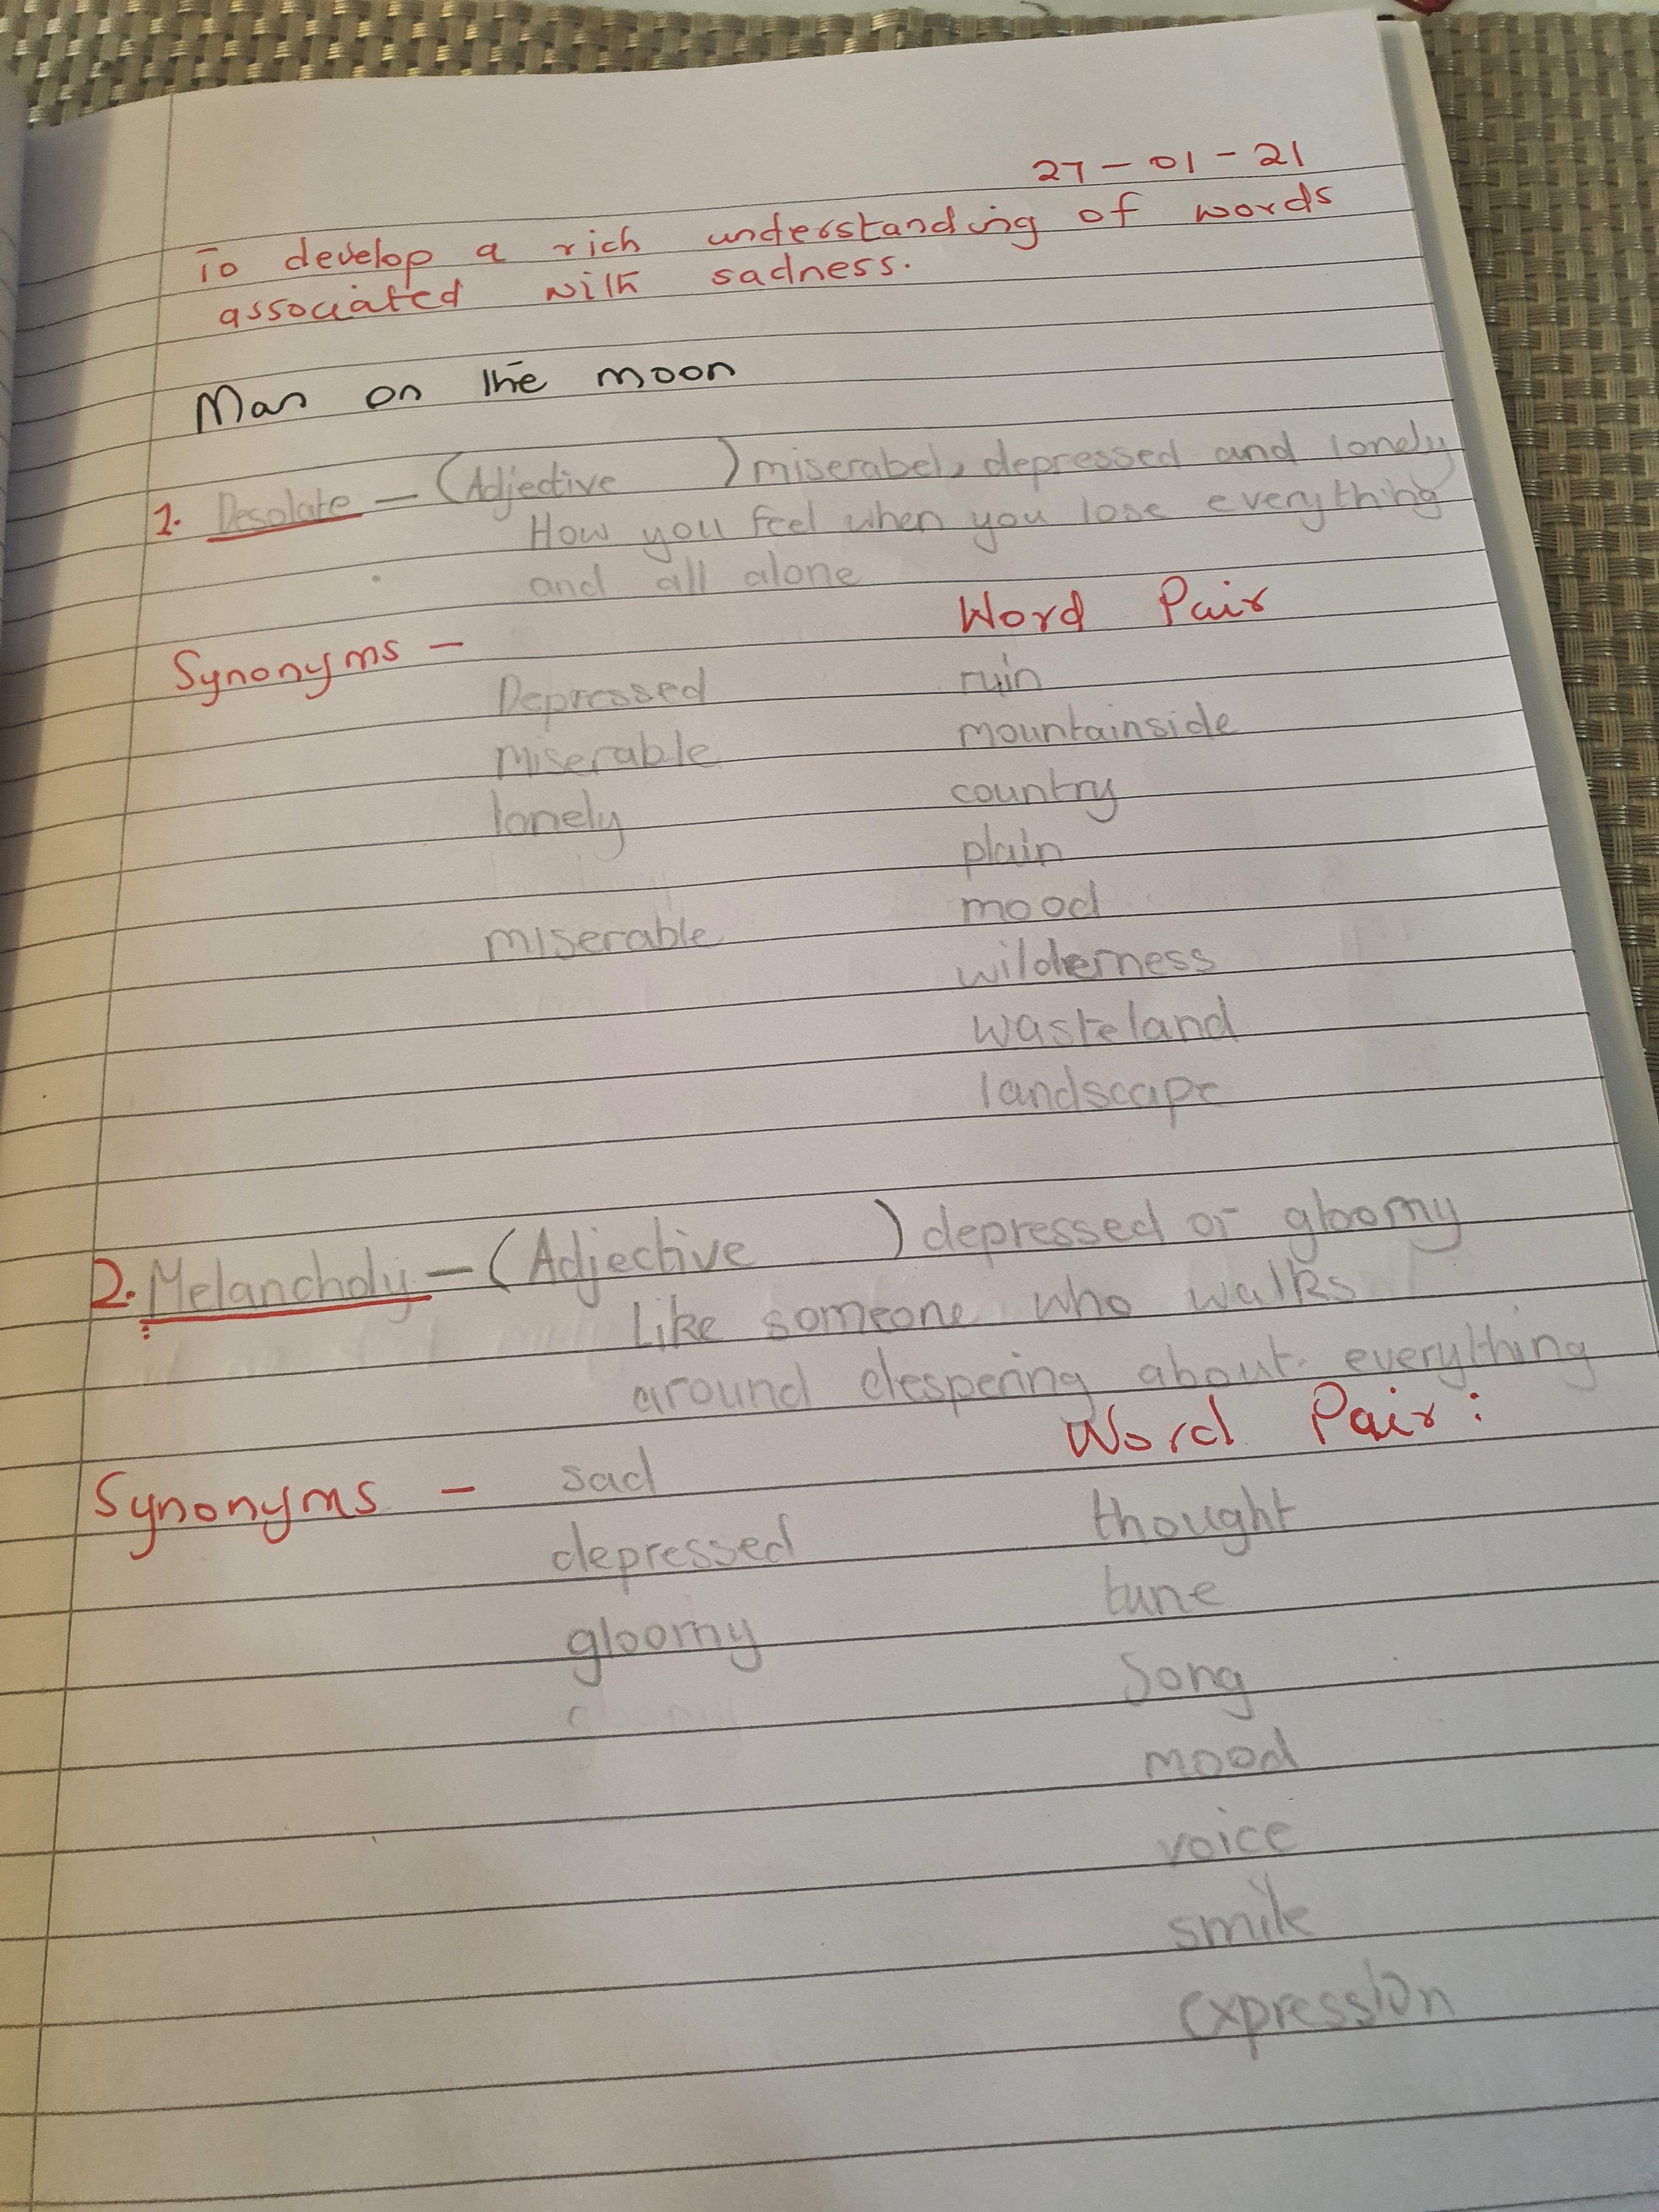 27-01-21
To develop a rich understanding of words
associated with sadness.
Man on the moon
1. Desolate - (Adjective ) miserabel, depressed and lonely
How you feel when you lose everything
and all alone
Word Pair
Synonyms -
Depressed ruin
miserable mountainside
lonely country
plain
miserable mood
wilderness
wasteland
landscape
2. Melancholy - (Adjective ) depressed or gloomy
Like someone who walks
around despering about everything
Word Pair:
Synonyms - sad
depressed thought
gloomy tune
Song
mood
voice
smile
expression